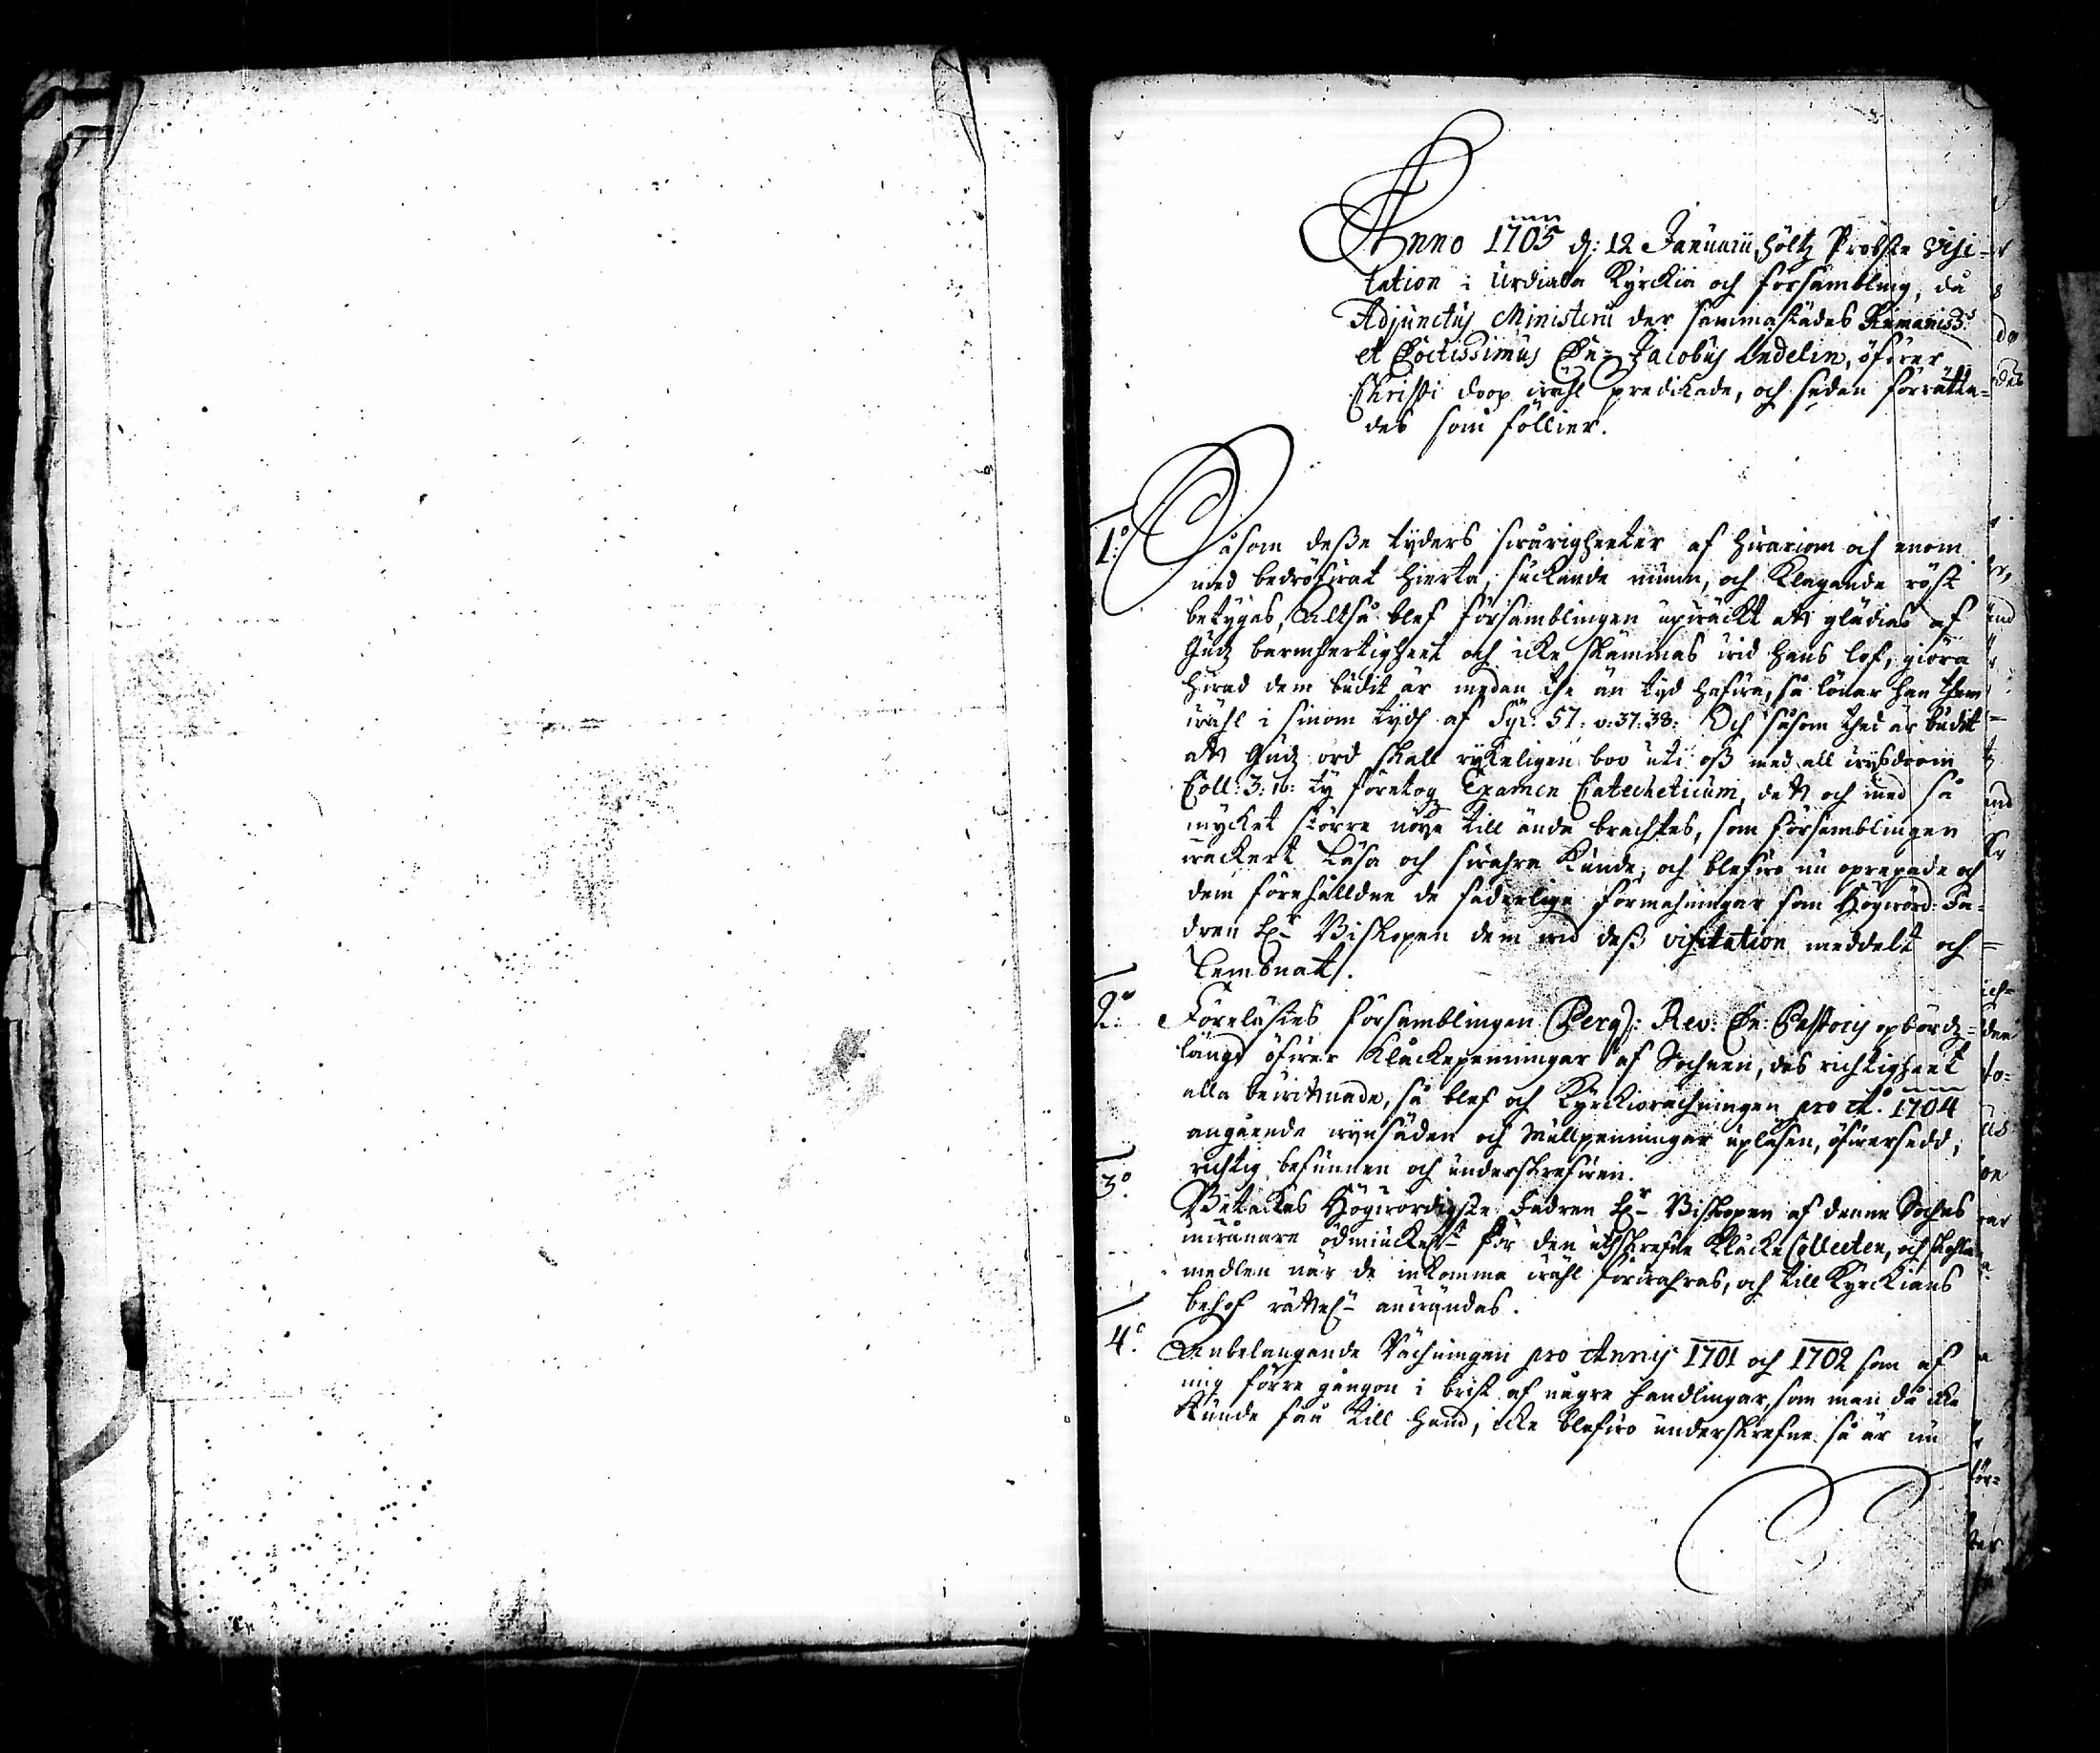 Anno 1705 d: 12 Januarii, höltz Probste Visi-
tation i Urdiala Kyrckia och försambling, då
Adjunctus Ministerii der sammastädes Humaniss:s
et Doctissimus Dn: Jacobus Indelin, öfwer
Christi doop wähl predikade, och sedan förrätta-
des som föllier.
1:o Såsom desse tyders swårigheeter af hwariom och enom
med bedröfwat hierta, suckande munn, och klagande röst
betygas, Altså blef församblingen upwäckt att glädias af
Gudz barmhertigheet och icke skämmas wid hans lof, giöra
hwad dem budit är medan the än tyd hafwa, så lönar han them
wähl i sinom tydh af Syr: 51: v: 37: 38: Och såsom thed är budit
att Gudz ord skall rykeligen boo uti oss med all wyssdoom
Coll: 3: 16: ty företog Examen Catecheticum, dett och med så
mycket större nöye till ända brachtes, som församblingen
wackert läsa och swahra kunde, och blefwo nu oprepade och
dem förehålldne de faderlige förmahningar som Högwörd: Fa-
dren Hr Biskopen dem wid dess visitation meddelt och
lembnatt.
2:o Föreläsies församblingen Perq: Rev: Dn: Pastoris opbördz-
längd öfwer Kluckepenningar af Sochnen, des richtigheet
alla bewittnade, så blef och Kyrckiorächningen pro Ao: 1704
angående wynsäden och Mullpenningar uplesen, öfwersedd,
richtig befunnen och underskrefwen.
3:o Betackas Högwördigste Fadren Hr Biskopen af denne Sochns
inwånare ödmiukest för den uthskrefne Klucke Collecten, och skola
medlen när de inkomma wähl förwahras, och till Kyrckians
behof rättel: anwändas.
4:o Anbelangande Rächningen pro Annis 1701 och 1702 som af
mig förre gången i brist af någre handlingar, som man då icke
kunde få till hand, icke blefwo underskrefne. så är nu